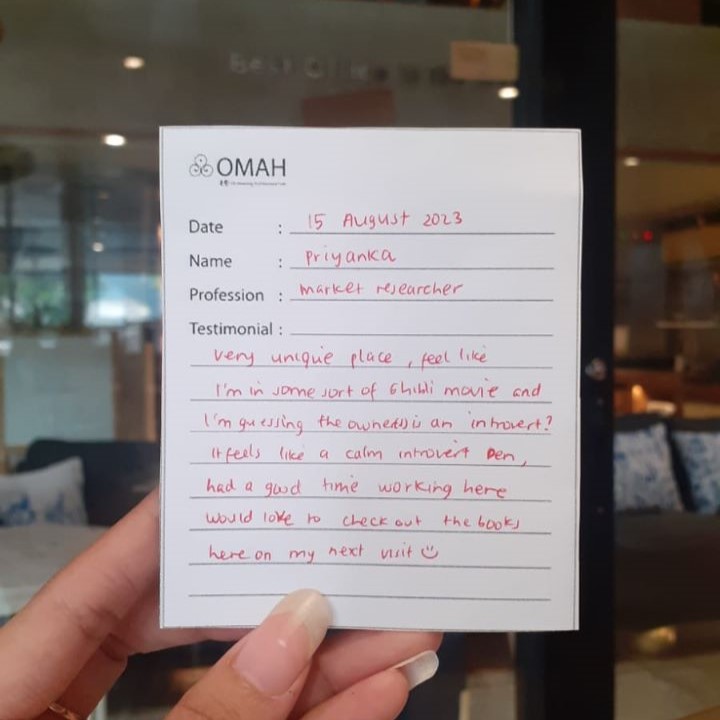 OMAH
Date : 15 August 2023
Name : Priyanka
Profession : market researcher
Testimonial :
very unique place, feel like
I'm in some sort of Ghibli movie and
I'm guessing the owner(s) is an introvert?
It feels like a calm introvert Den,
had a good time working here
would love to check out the books
here on my next visit ☺